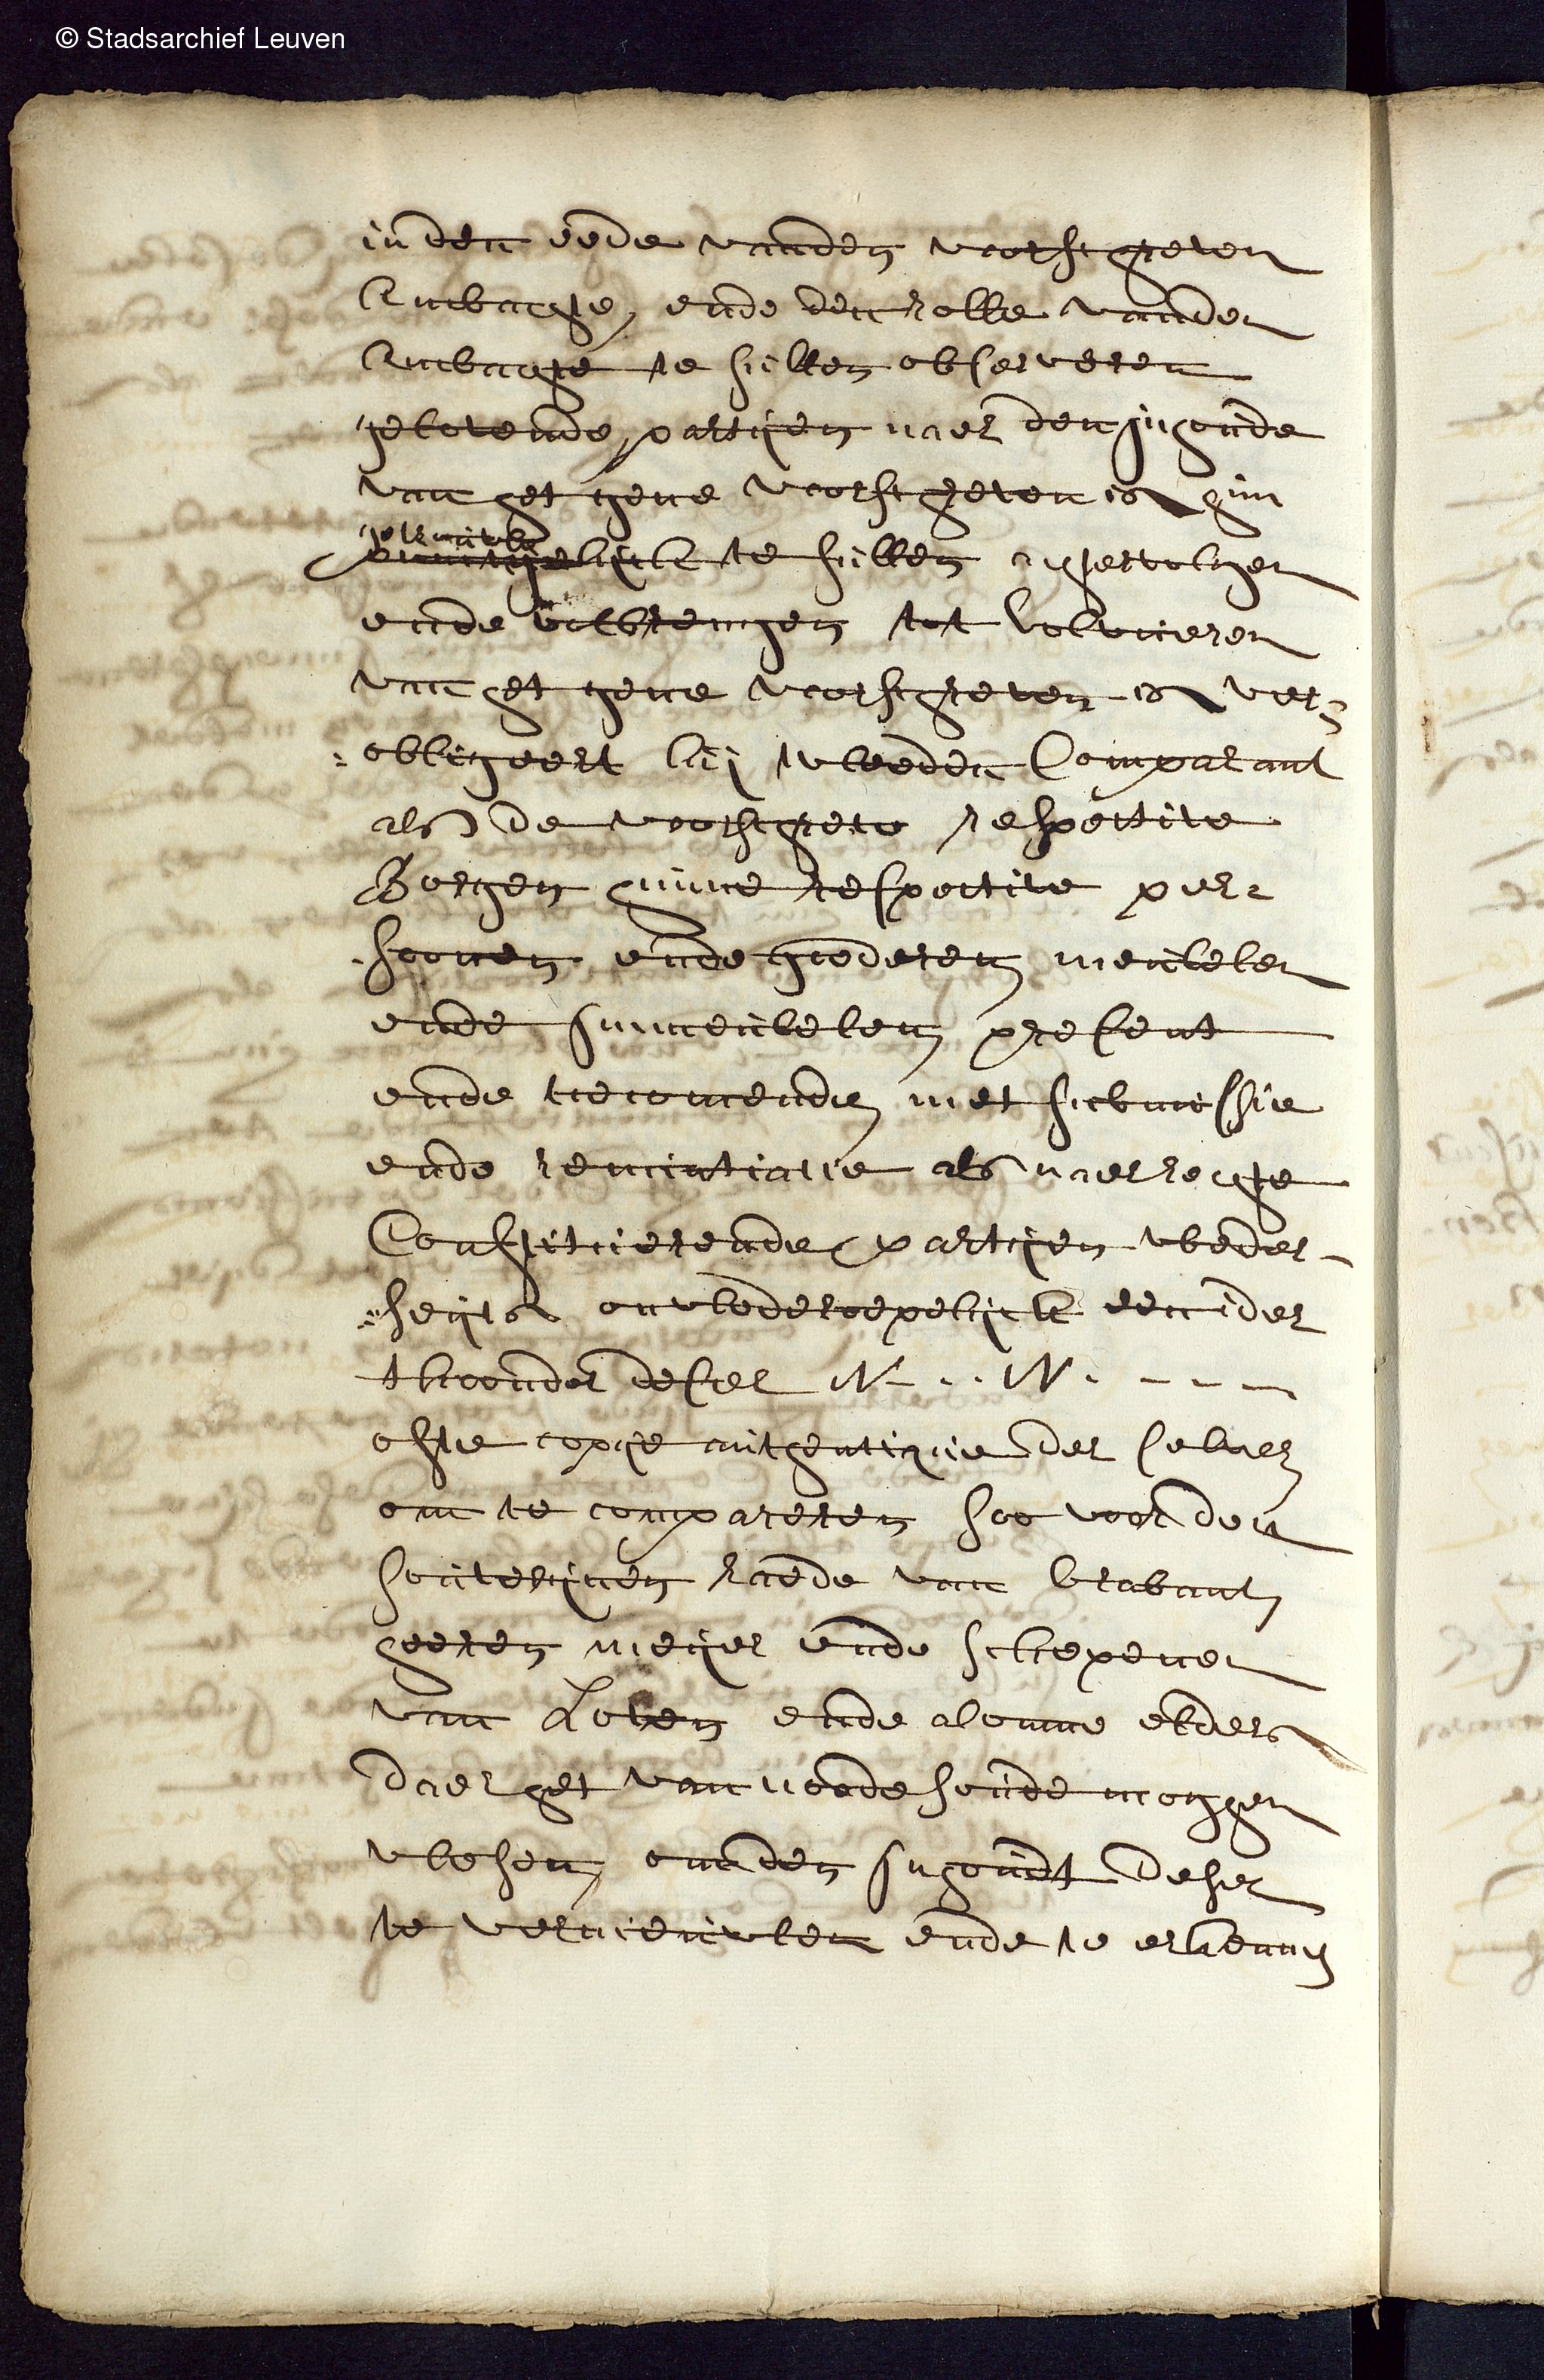 © Stadsarchief Leuven
inden eede vanden voorschreven
Ambachte, ende den rolle vander
Ambacht te sullen observeren
gelovende, partijen naer den inhoude
van het gene voorschreven is hun
getrauwelijck te sullen achtervolgen
ende volbrengen tot volvueren
van het gene voorschreven is ver-
obligeert bij tweeden Comparant
als de voorschreve respective
Borgen hunne respective per-
soonen ende goederen meubelen
ende immeubelen present
ende toecomende met submissie
ende renuntiatie als naer rechte
Constituerende partijen weder-
seyts onwederroepelijck een ider
thoonder deser N. .. N. - - - -
ofte copije authentique der selver
om te compareren soo voor den
souvereijnen raede van brabant
heeren meijer ende schepenen
van Loven ende alomme elders
daer het van noode soude moghen
wesen, om den inhoudt deser
te vernieuwen ende te erkennen